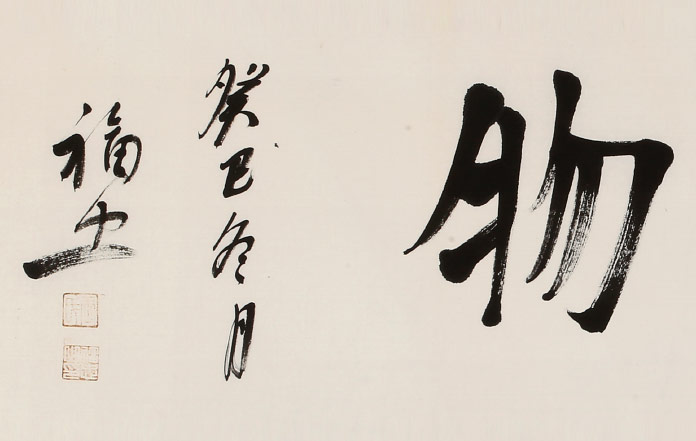 物
癸巳冬月
福